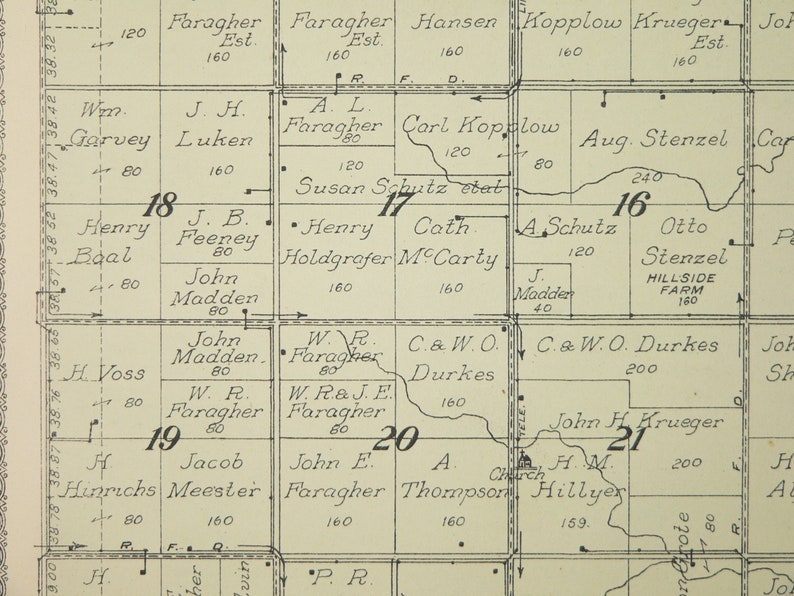 38.32
120
Faragher
Est.
160
Faragher
Est.
160
Hansen
160
Kopplow
160
Krueger
Est.
160
Joh
R. F. D.
38.42
38.47
Wm.
Garvey
80
J. H.
Luken
160
A. L.
Faragher
80
Carl Kopplow
120
80
Aug. Stenzel
240
Car
120
Susan Schutz etal
18
17
16
38.52
38.57
Henry
Baal
80
J. B.
Feeney
80
John
Madden
80
Henry
Holdgrafer
160
Cath.
McCarty
160
A. Schutz
120
J.
Madden
40
Otto
Stenzel
HILLSIDE
FARM
160
Pe
38.65
38.76
H. Voss
80
John
Madden
80
W. R.
Faragher
80
W. R.
Faragher
80
W. R. & J. E.
Faragher
80
C. & W. O.
Durkes
160
C. & W. O. Durkes
200
Joh
Sh
TELE.
John H. Krueger
200
19
20
21
38.87
38.78
H.
Hinrichs
80
Jacob
Meester
160
John E.
Faragher
160
A.
Thompson
160
Church
H. M.
Hillyer
159.
R. F. D.
H
Al
R. F. D.
on Grote
80
9.00
H.
her
lvin
P. R.
Jo